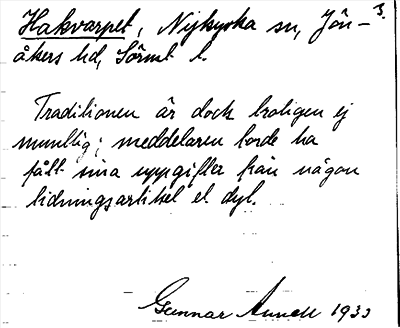 3.
Hakvarpet, Nykyrka sn, Jön-
åkers hd, Sörml l.
Traditionen är dock troligen ej
muntlig; meddelaren torde ha
fått sina uppgifter från någon
tidningsartikel el. dyl.
Gunnar 1933